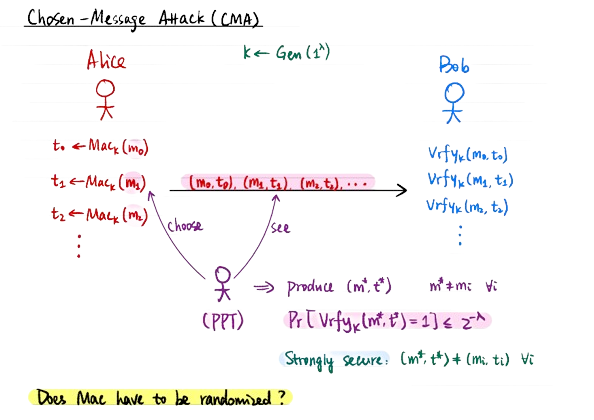 Chosen-Message Attack (CMA)
k ← Gen(1^λ)
Alice
Bob
t₀ ← Macₖ(m₀)
t₁ ← Macₖ(m₁)
t₂ ← Macₖ(m₂)
⋮
(m₀, t₀), (m₁, t₁), (m₂, t₂), ···
Vrfyₖ(m₀, t₀)
Vrfyₖ(m₁, t₁)
Vrfyₖ(m₂, t₂)
⋮
choose
see
(PPT)
⇒ produce (m*, t*) m* ≠ mᵢ ∀i
Pr[Vrfyₖ(m*, t*) = 1] ≤ 2^-λ
Strongly secure: (m*, t*) ≠ (mᵢ, tᵢ) ∀i
Does Mac have to be randomized?